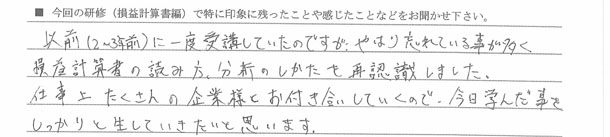 ■ 今回の研修（損益計算書編）で特に印象に残ったことや感じたことなどをお聞かせ下さい。
以前（2〜3年前）に一度受講していたのですが、やはり忘れている事が多く
損益計算書の読み方、分析のしかたを再認識しました。
仕事上たくさんの企業様とお付き合いしていくので、今日学んだ事を
しっかりと生していきたいと思います。